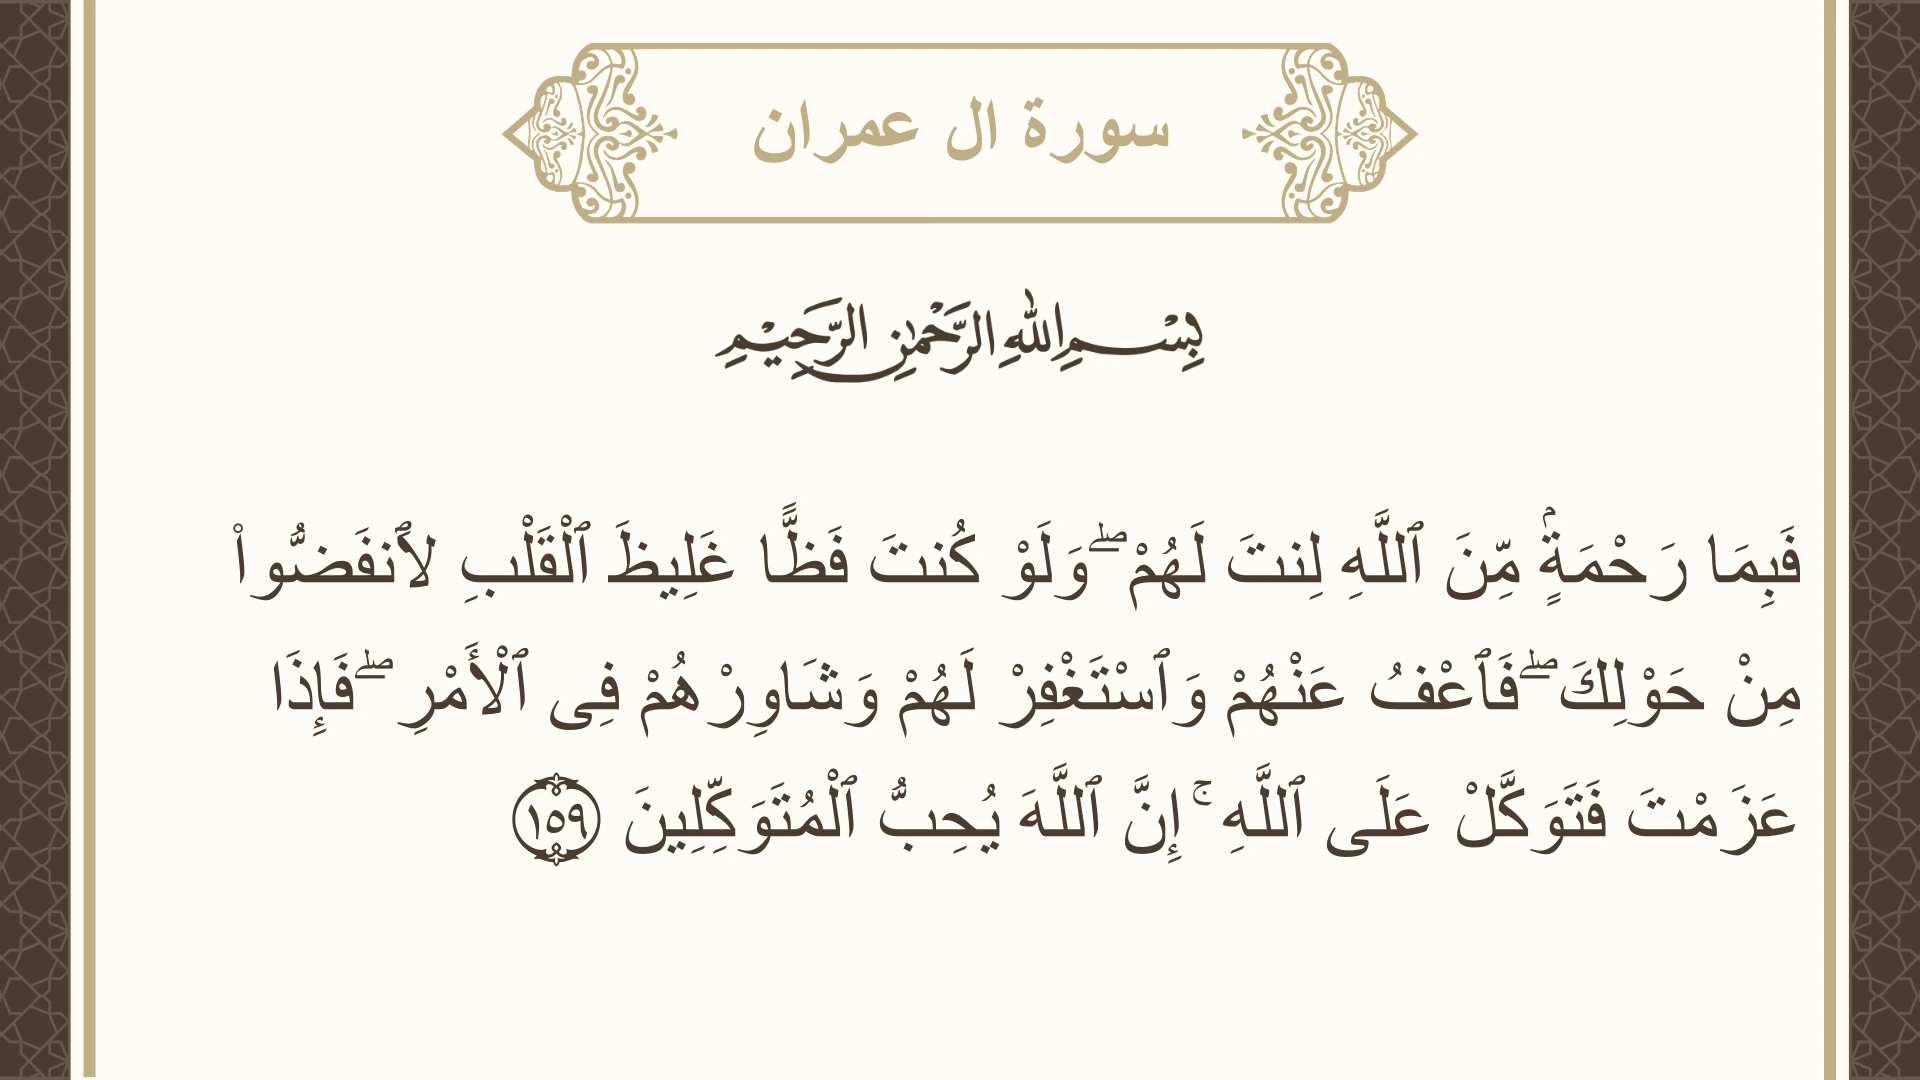 سورة ال عمران
بِسْمِ اللهِ الرَّحْمٰنِ الرَّحِيْمِ
فَبِمَا رَحْمَةٍۢ مِّنَ ٱللَّهِ لِنتَ لَهُمْ ۖ وَلَوْ كُنتَ فَظًّا غَلِيظَ ٱلْقَلْبِ لَٱنفَضُّوا۟
مِنْ حَوْلِكَ ۖ فَٱعْفُ عَنْهُمْ وَٱسْتَغْفِرْ لَهُمْ وَشَاوِرْهُمْ فِى ٱلْأَمْرِ ۖ فَإِذَا
عَزَمْتَ فَتَوَكَّلْ عَلَى ٱللَّهِ ۚ إِنَّ ٱللَّهَ يُحِبُّ ٱلْمُتَوَكِّلِينَ ١٥٩